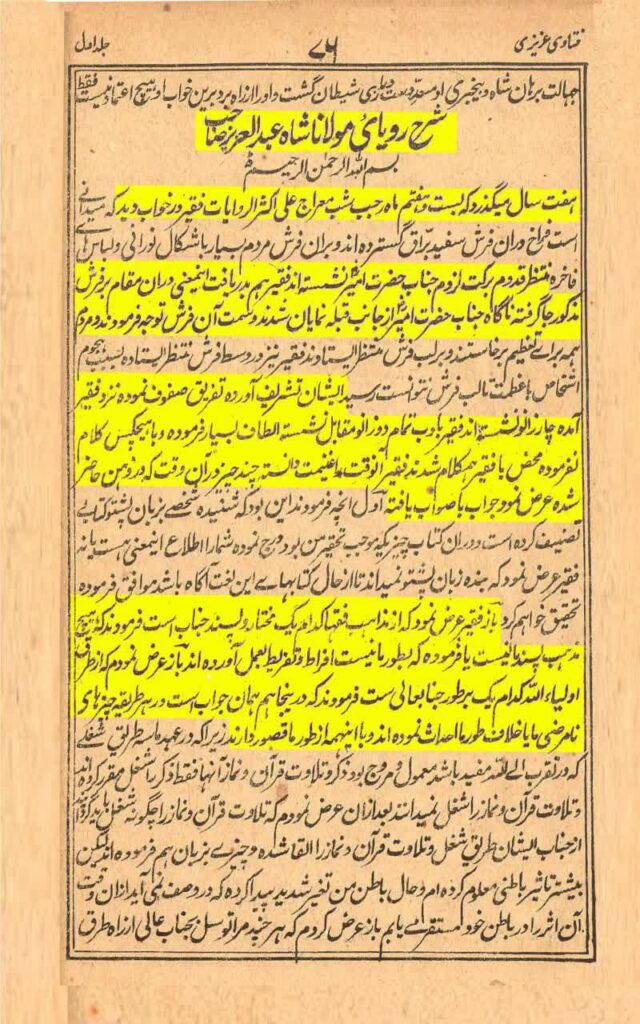 فتاوی عزیزی
۷۶
جلد اول
جہالت برہان شاہ و بیخبری او شیطان گشت و اورا از راه برد برین خواب او ہیچ اعتماد نیست فقط
شرح رویائے مولانا شاہ عبدالعزیز صاحب
بسم اللہ الرحمن الرحیم
ہفت سال میگذرد کہ بست و ہفتم ماہ رجب شب معراج علی اکثر الروایات فقیر در خواب دید کہ میدانے
است فراخ دران فرش سفید براق گستردہ اند و بران فرش مردم بسیار باشکال نورانی و لباس ہائے
فاخرہ منتظر قدوم برکت لزوم جناب حضرت امیر نشستہ اند فقیر ہم بدریافت اینمعنی دران مقام بر فرش
مذکور جا گرفتہ ناگاہ جناب حضرت امیر از جانب قبلہ نمایان شدند و سمت آن فرش توجہ فرمودند و مردم
ہمہ برائے تعظیم برخاستند و برلب فرش منتظر ایستادند فقیر نیز در وسط فرش منتظر ایستادہ بسبب ہجوم
اشخاص باعظمت تالب فرش نتوانست رسید ایشان تشریف آوردہ تفریق صفوف نمودہ نزد فقیر
آمدہ چار زانو نشستہ اند فقیر بادب تمام دو زانو مقابل نشستہ الطاف بسیار فرمودہ و باہیچکس کلام
نفرمودہ محض با فقیر ہمکلام شدند فقیر آنوقت را غنیمت دانستہ چند چیز درآن وقت کہ در ذہن حاضر
شدہ عرض نمود و جواب باصواب یافتہ اول آنچہ فرمودند این بود کہ شنیدہ شخصے بزبان پشتو کتابے
تصنیف کردہ است و دران کتاب چیزیکہ موجب تحقیر من بود درج نمودہ شمارا اطلاع اینمعنی ہست یا نہ
فقیر عرض نمود کہ بندہ زبان پشتو نمیداند تا از حال کتابہائے این لغت آگاہ باشد موافق فرمودہ
تحقیق خواہم کرد باز فقیر عرض نمود کہ از مذاہب فقہا کدام یک مختار و پسند جناب است فرمودند کہ ہیچ
مذہب پسند ما نیست یا فرمودہ کہ بطور ما نیست افراط و تفریط بعمل آوردہ اند باز عرض نمودم کہ از طرق
اولیاء اللہ کدام یک بر طور جنابعالی ست فرمودند کہ درینجا ہم ہمان جواب است در ہر طریقہ چیزہای
نامرضی ما یا خلاف طور ما احداث نمودہ اند و با اینہمہ از طور ما قصور دارند زیرا کہ در عہد ما سہ طریق شغلے
کہ در تقرب الے اللہ مفید باشد معمول و مروج بود ذکر و تلاوت قرآن و نماز آنہا فقط ذکر را شغل مقرر کردہ اند
و تلاوت قرآن و نماز را شغل نمیدانند بعد ازان عرض نمودم کہ تلاوت قرآن و نماز را چگونہ شغل باید
از جناب ایشان طریق شغل و تلاوت قرآن و نماز را القا شدہ و چیزے بزبان ہم فرمودہ اند لیکن
بیشتر تاثیر باطنی معلوم کردہ ام و حال باطن من تغیر شدید پیدا کردہ کہ در وصف نمی آید ازان وقت
آن اثر را در باطن خود مستقر مے یابم باز عرض کردم کہ ہر چند مرا توسل بجناب عالی از راہ طرق